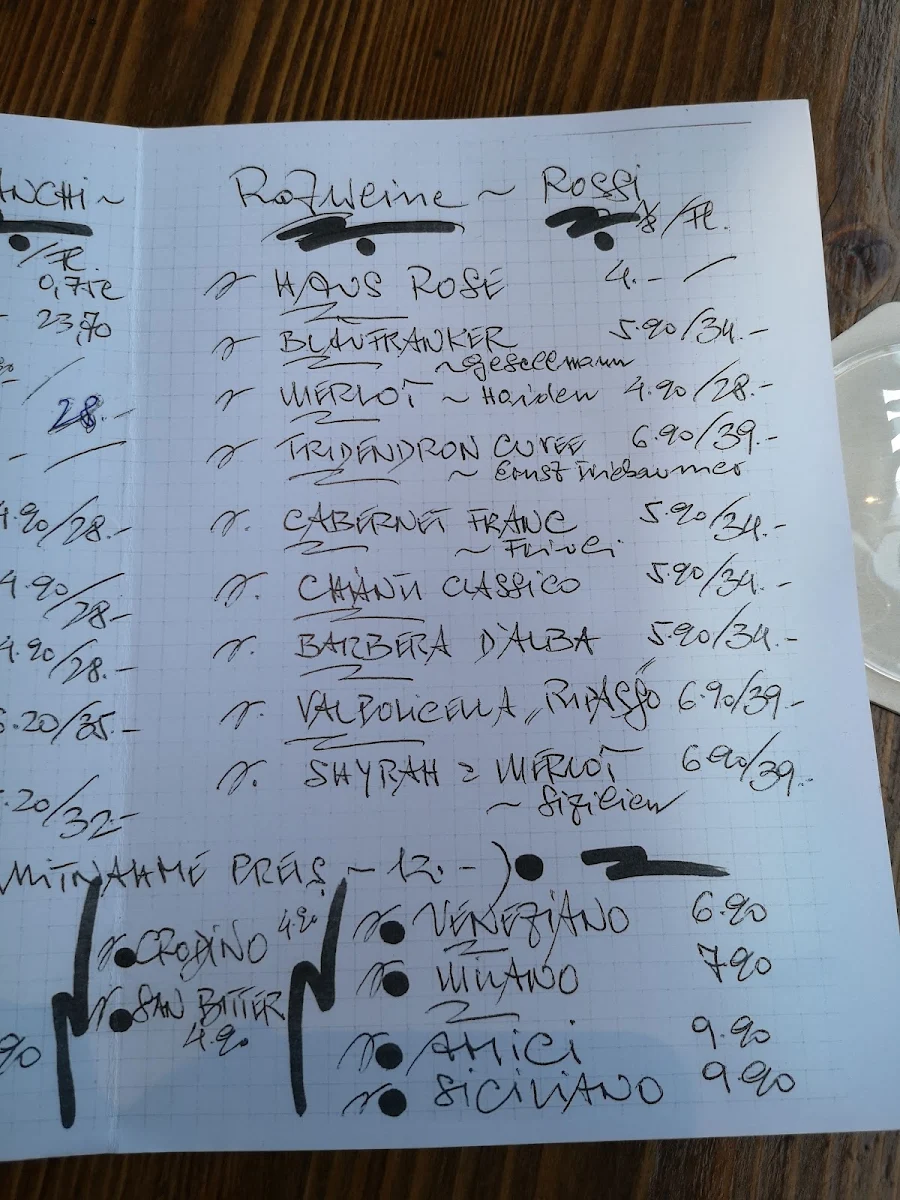 ANCHI ~
/Fl.
0,75l
23,70
28.-
4.90/28.-
4.90/
28.-
4.90/28.-
.20/35.-
.20/32.-
Rotweine ~ Rossi
1/8 /Fl.
HAUS ROSÉ 4.- /
BLAUFRANKER 5.90/34.-
~ gesellmann
MERLOT ~ Haiden 4.90/28.-
TRIDENDRON CUVEE 6.90/39.-
~ Ernst Triebaumer
CABERNET FRANC 5.90/34.-
~ Friuli
CHIANTI CLASSICO 5.90/34.-
BARBERA D'ALBA 5.90/34.-
VALPOLICELLA „RIPASSO" 6.90/39.-
SHYRAH = MERLOT 6.90/39.-
~ Sizilien
MITNAHME PREIS ~ 12.-)
CRODINO 4.90
SAN BITTER
4.90
90
VENEZIANO 6.90
MILANO 7.90
AMICI 9.90
SICILIANO 9.90